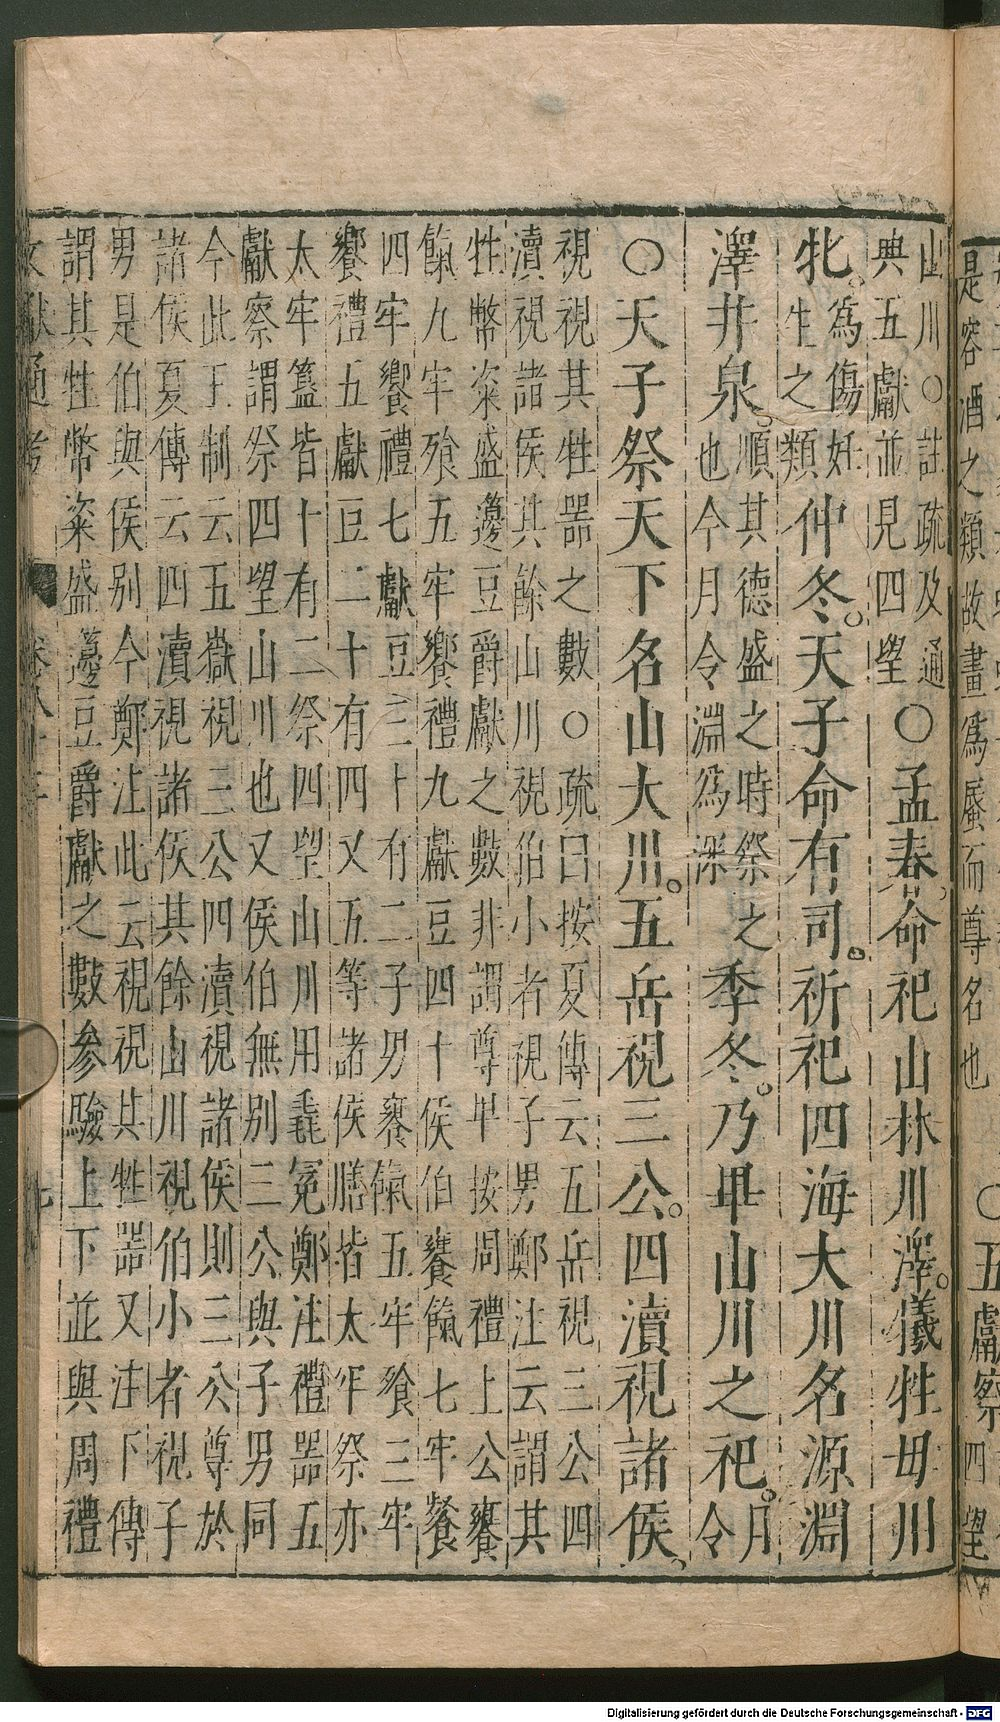 是容酒之類故畫爲蜃而尊名也○五獻察四望
山川○註疏及通
典五獻並見四望
○孟春命祀山林川澤。犧牲毋用
牝。
爲傷妊
生之類
仲冬。天子命有司。祈祀四海大川名源淵
澤井泉。
順其德盛之時祭之
也今月令淵爲深
季冬。乃畢山川之祀。
月
令
○天子祭天下名山大川。五岳視三公。四瀆視諸侯、
視視其牲器之數○疏曰按夏傳云五岳視三公四
瀆視諸侯其餘山川視伯小者視子男鄭注云謂其
牲幣粢盛籩豆爵獻之數非謂尊卑按周禮上公饔
餼九牢飱五牢饗禮九獻豆四十侯伯饔餼七牢餐
四牢饗禮七獻豆三十有二子男饔餼五牢飱三牢
饗禮五獻豆二十有四又五等諸侯膳皆太牢祭亦
太牢簋皆十有二祭四望山川用毳冕鄭注禮器五
獻察謂祭四望山川也又侯伯無别三公與子男同
今此王制云五嶽視三公四瀆視諸侯則三公尊於
諸侯夏傳云四瀆視諸侯其餘山川視伯小者視子
男是伯與侯别今鄭注此云視視其牲器又注下傳
謂其牲幣粢盛籩豆爵獻之數參驗上下並與周禮
文獻通考
Digitalisierung gefördert durch die Deutsche Forschungsgemeinschaft - DFG